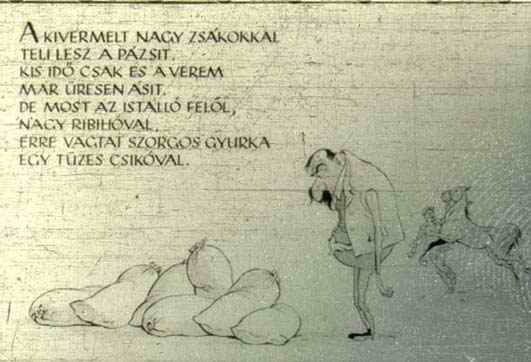 A KIVERMELT NAGY ZSÁKOKKAL
TELI LESZ A PÁZSIT.
KIS IDŐ CSAK ÉS A VEREM
MÁR ÜRESEN ÁSIT.
DE MOST AZ ISTÁLLÓ FELŐL,
NAGY RIBILIÓVAL,
ERRE VÁGTAT SZORGOS GYURKA
EGY TÜZES CSIKÓVAL.